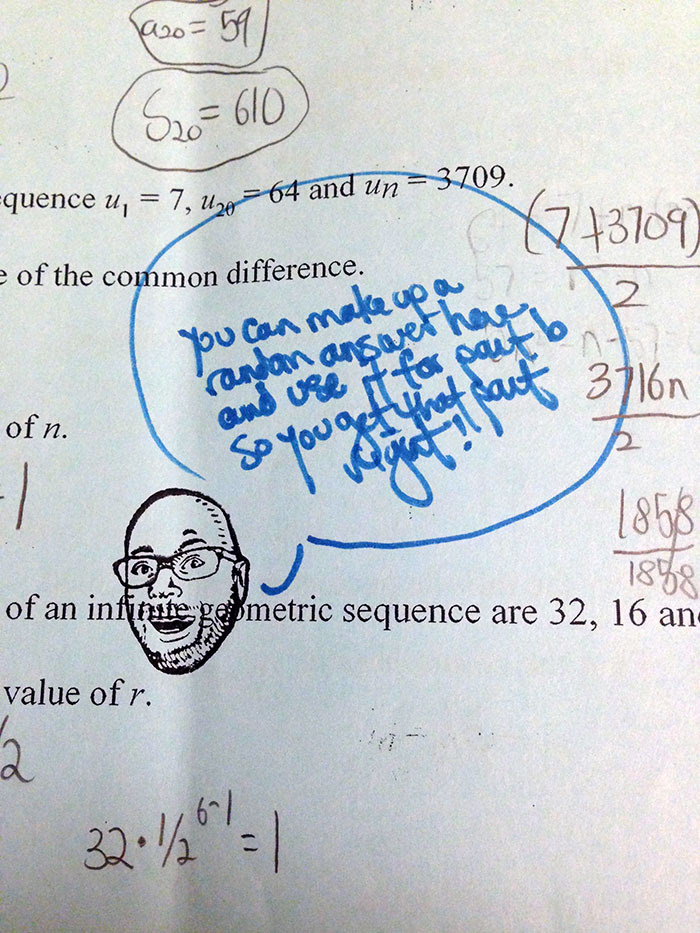 a20 = 59
S20 = 610
equence u1 = 7, u20 = 64 and un = 3709.
(7+3709)
2
e of the common difference.
you can make up a
randon answer here
and use it for part b
so you get that part
right!
3716n
2
of n.
1858
1858
of an infinite geometric sequence are 32, 16 an
value of r.
/2
32 · 1/2^6-1 = 1